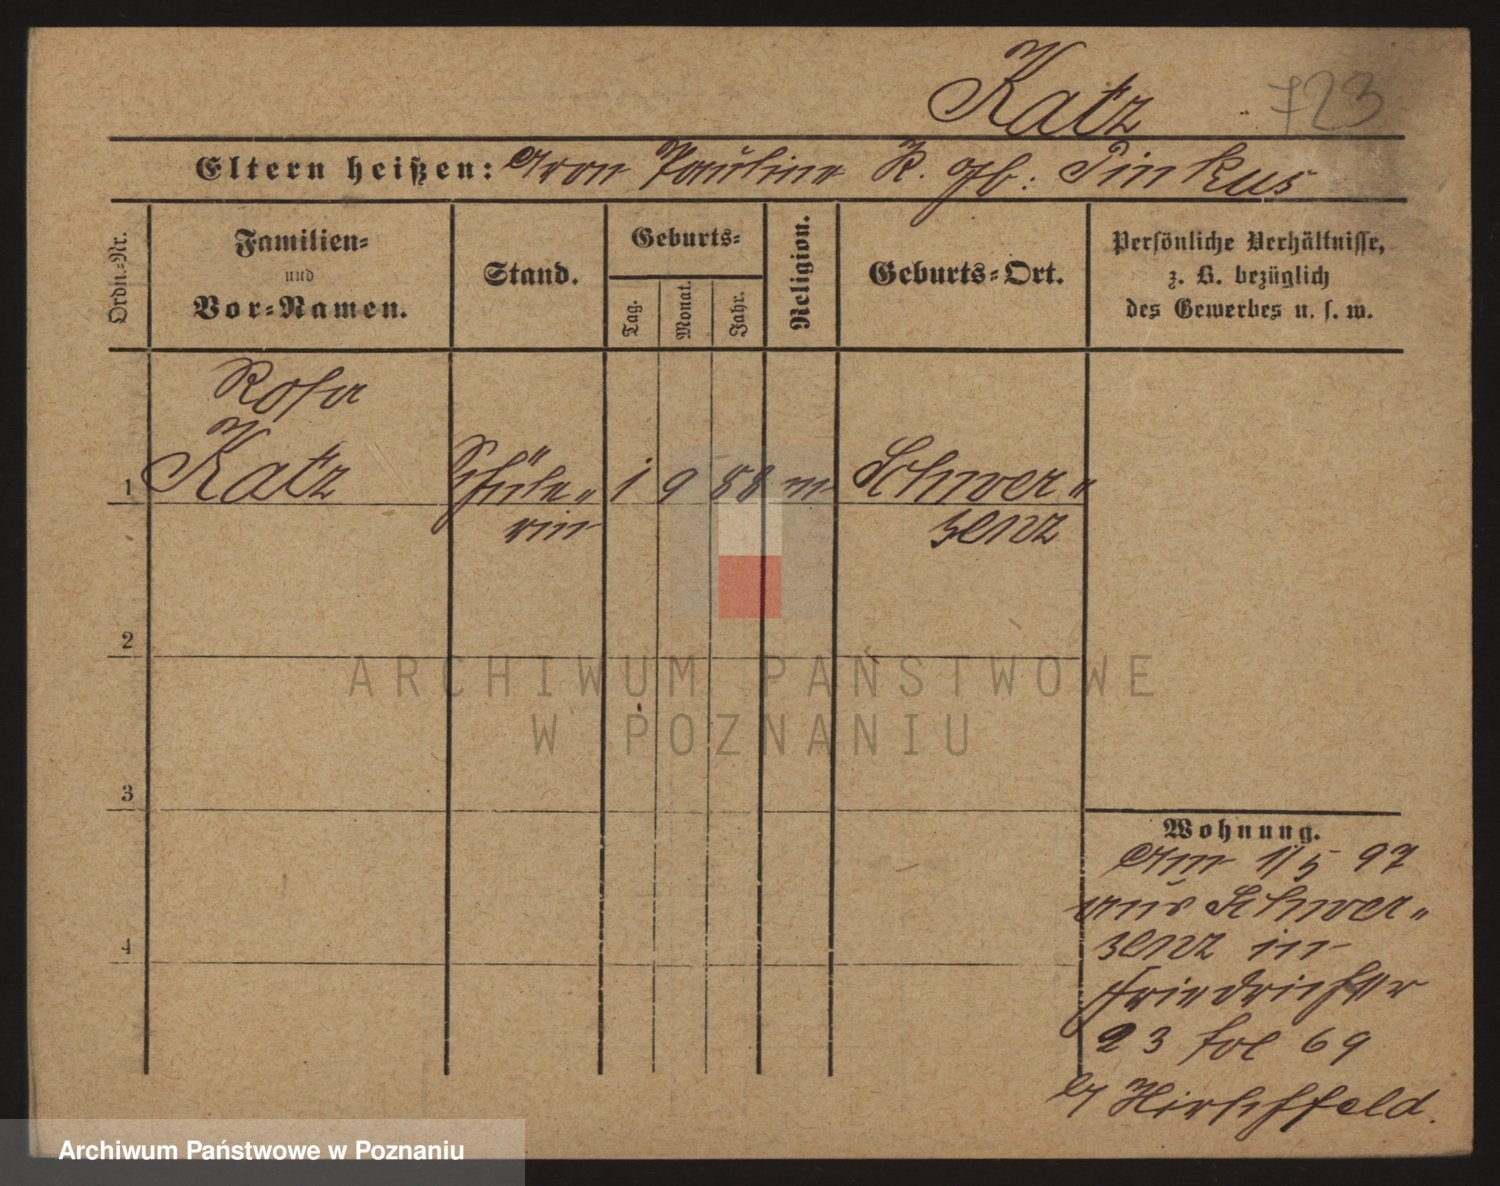 Katz 723
Eltern heißen: Aron Pauline K. gb: Pinkus
Ordn.=Nr.
Familien=
und
Vor=Namen.
Stand.
Geburts=
Tag.
Monat.
Jahr.
Religion.
Geburts=Ort.
Persönliche Verhältnisse,
z. B. bezüglich
des Gewerbes u. s. w.
Rosa
1 Katz Schüle„ 1 9 88 m Schwer„
rin senz
2
3
4
Wohnung.
Am 1/5 97
aus Schwer„
senz in
Friedrichstr
23 fol 69
by Hirschfeld.
ARCHIWUM PAŃSTWOWE
W POZNANIU
Archiwum Państwowe w Poznaniu